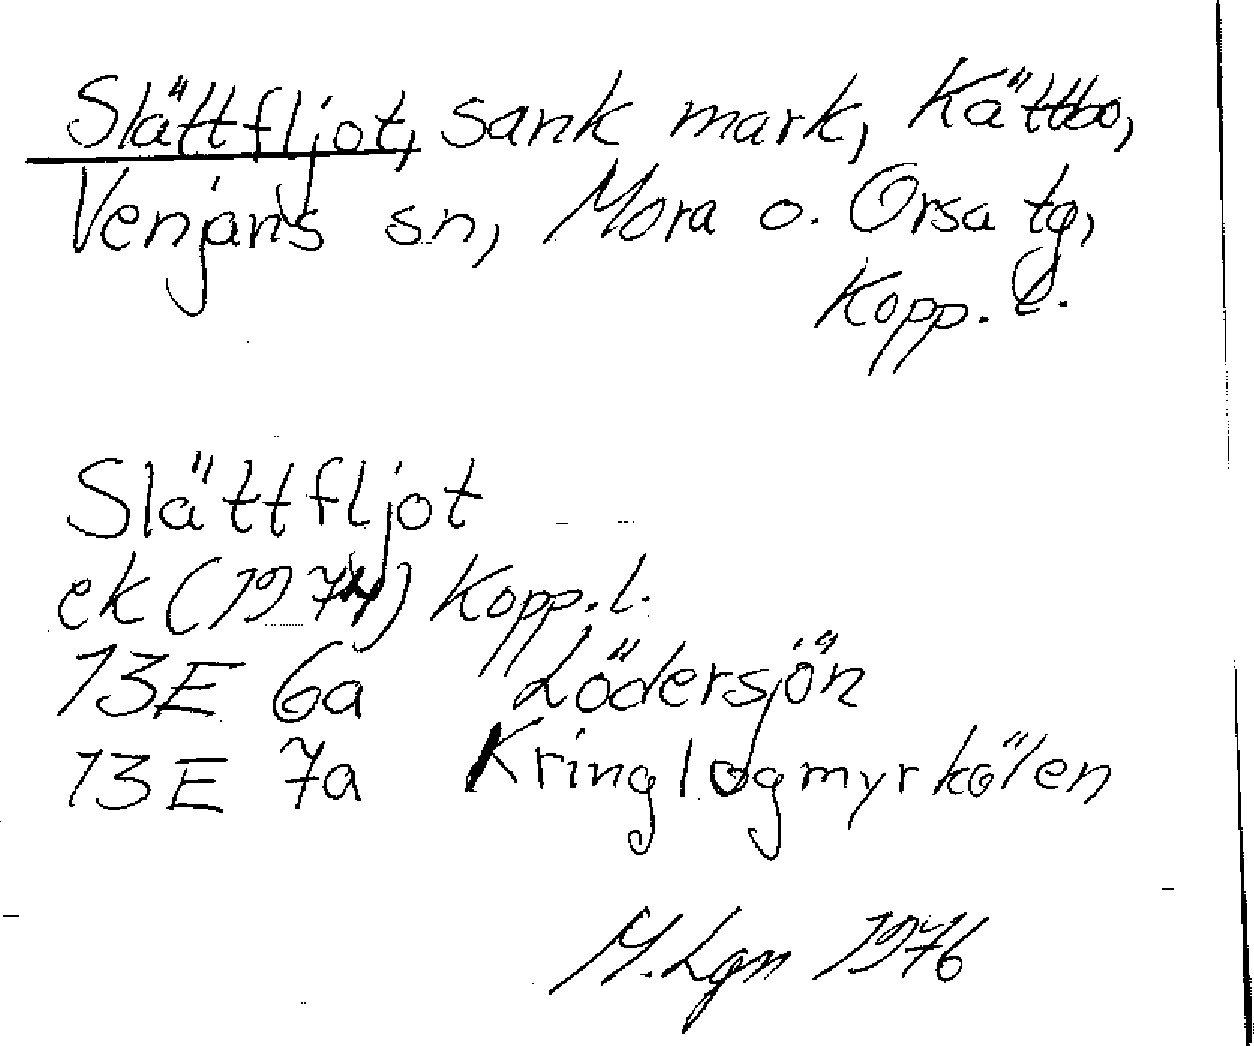 Slättfljot, sank mark, Kättbo,
Venjans sn, Mora o. Orsa tg,
Kopp. l.
Slättfljot
ek (1974) Kopp. l.
13E 6a Lödersjön
13E 7a Kringlogmyrkölen
M. Lgn 1976